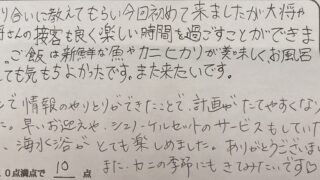 り合いに教えてもらい今回初めて来ましたが大将や
さんの接客も良く楽しい時間を過ごすことができま
ご飯は新鮮な魚やカニヒカリが美味しくお風呂
ても気もちよかったです。また来たいです。
で情報のやりとりができたことで、計画がたてやすくなり
た。早いお迎えや、シュノーケルセットのサービスもしていた
、海水浴がとても楽しめました。ありがとうございま
また、カニの季節にもきてみたいです♡
０点満点で 10 点